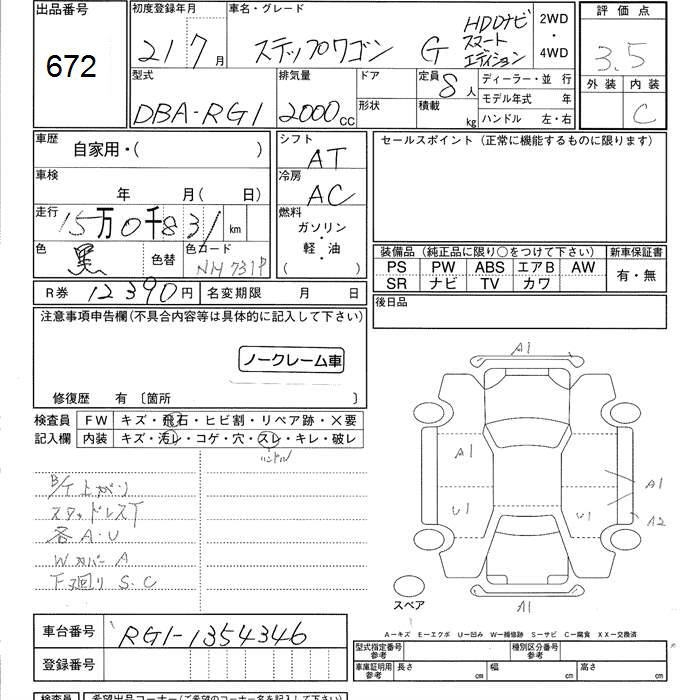 出品番号
672
初度登録年月
21 7月
車名・グレード
ステップワゴン G HDDナビ
スマート
エディション
2WD
・
4WD
評価点
3.5
外装 内装
C
型式
DBA-RG1
排気量
2000cc
ドア
形状
定員 8人
積載 kg
ディーラー・並行
モデル年式 年
ハンドル 左・右
車歴
自家用・( )
車検
年 月( 日)
走行
15万0千831km
色
黒
色替
色コード
NH731P
シフト
AT
冷房
AC
燃料
ガソリン
・
軽・油
( )
セールスポイント (正常に機能するものに限ります)
装備品 (純正品に限り○をつけて下さい)
PS PW ABS エアB AW
SR ナビ TV カワ
新車保証書
有・無
R券 12390円
名変期限 月 日
後日品
注意事項申告欄(不具合内容等は具体的に記入して下さい)
ノークレーム車
修復歴 有 〔箇所 〕
検査員
記入欄
FW キズ・飛石・ヒビ割・リペア跡・X要
内装 キズ・汚レ・コゲ・穴・スレ・キレ・破レ
ハンドル
B/T上がり
スタッドレスT
各A・U
Wカバー A
F下回り S.C
A1
A1
A1
U1
U1
A2
A1
スペア
車台番号
RG1-1354346
登録番号
A-キズ E-エクボ U-凹み W-補修跡 S-サビ C-腐食 XX-交換済
型式指定番号
参考
種別区分番号
参考
車庫証明用
参考
長さ cm
幅 cm
高さ cm
検査員
希望出品コーナー(ご希望のコーナー名を記入下さい)